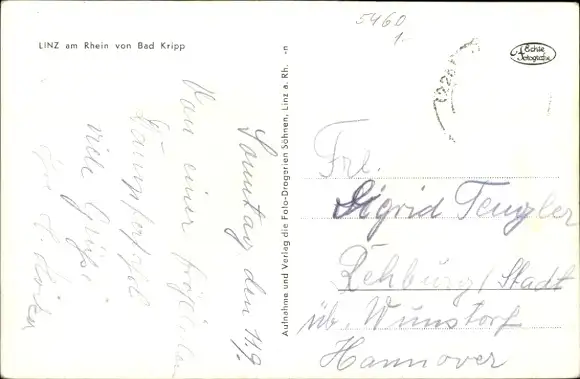 LINZ am Rhein von Bad Kripp
5460
1.-
Echte
Fotografie
Aufnahme und Verlag die Foto-Drogerien Söhnen, Linz a. Rh.
Sonntag den 11.9.
Von einer
Dampferfahrt
Grüße
Frl.
Sigrid Tenzler
Rehburg/Stadt
üb. Wunstorf
Hannover